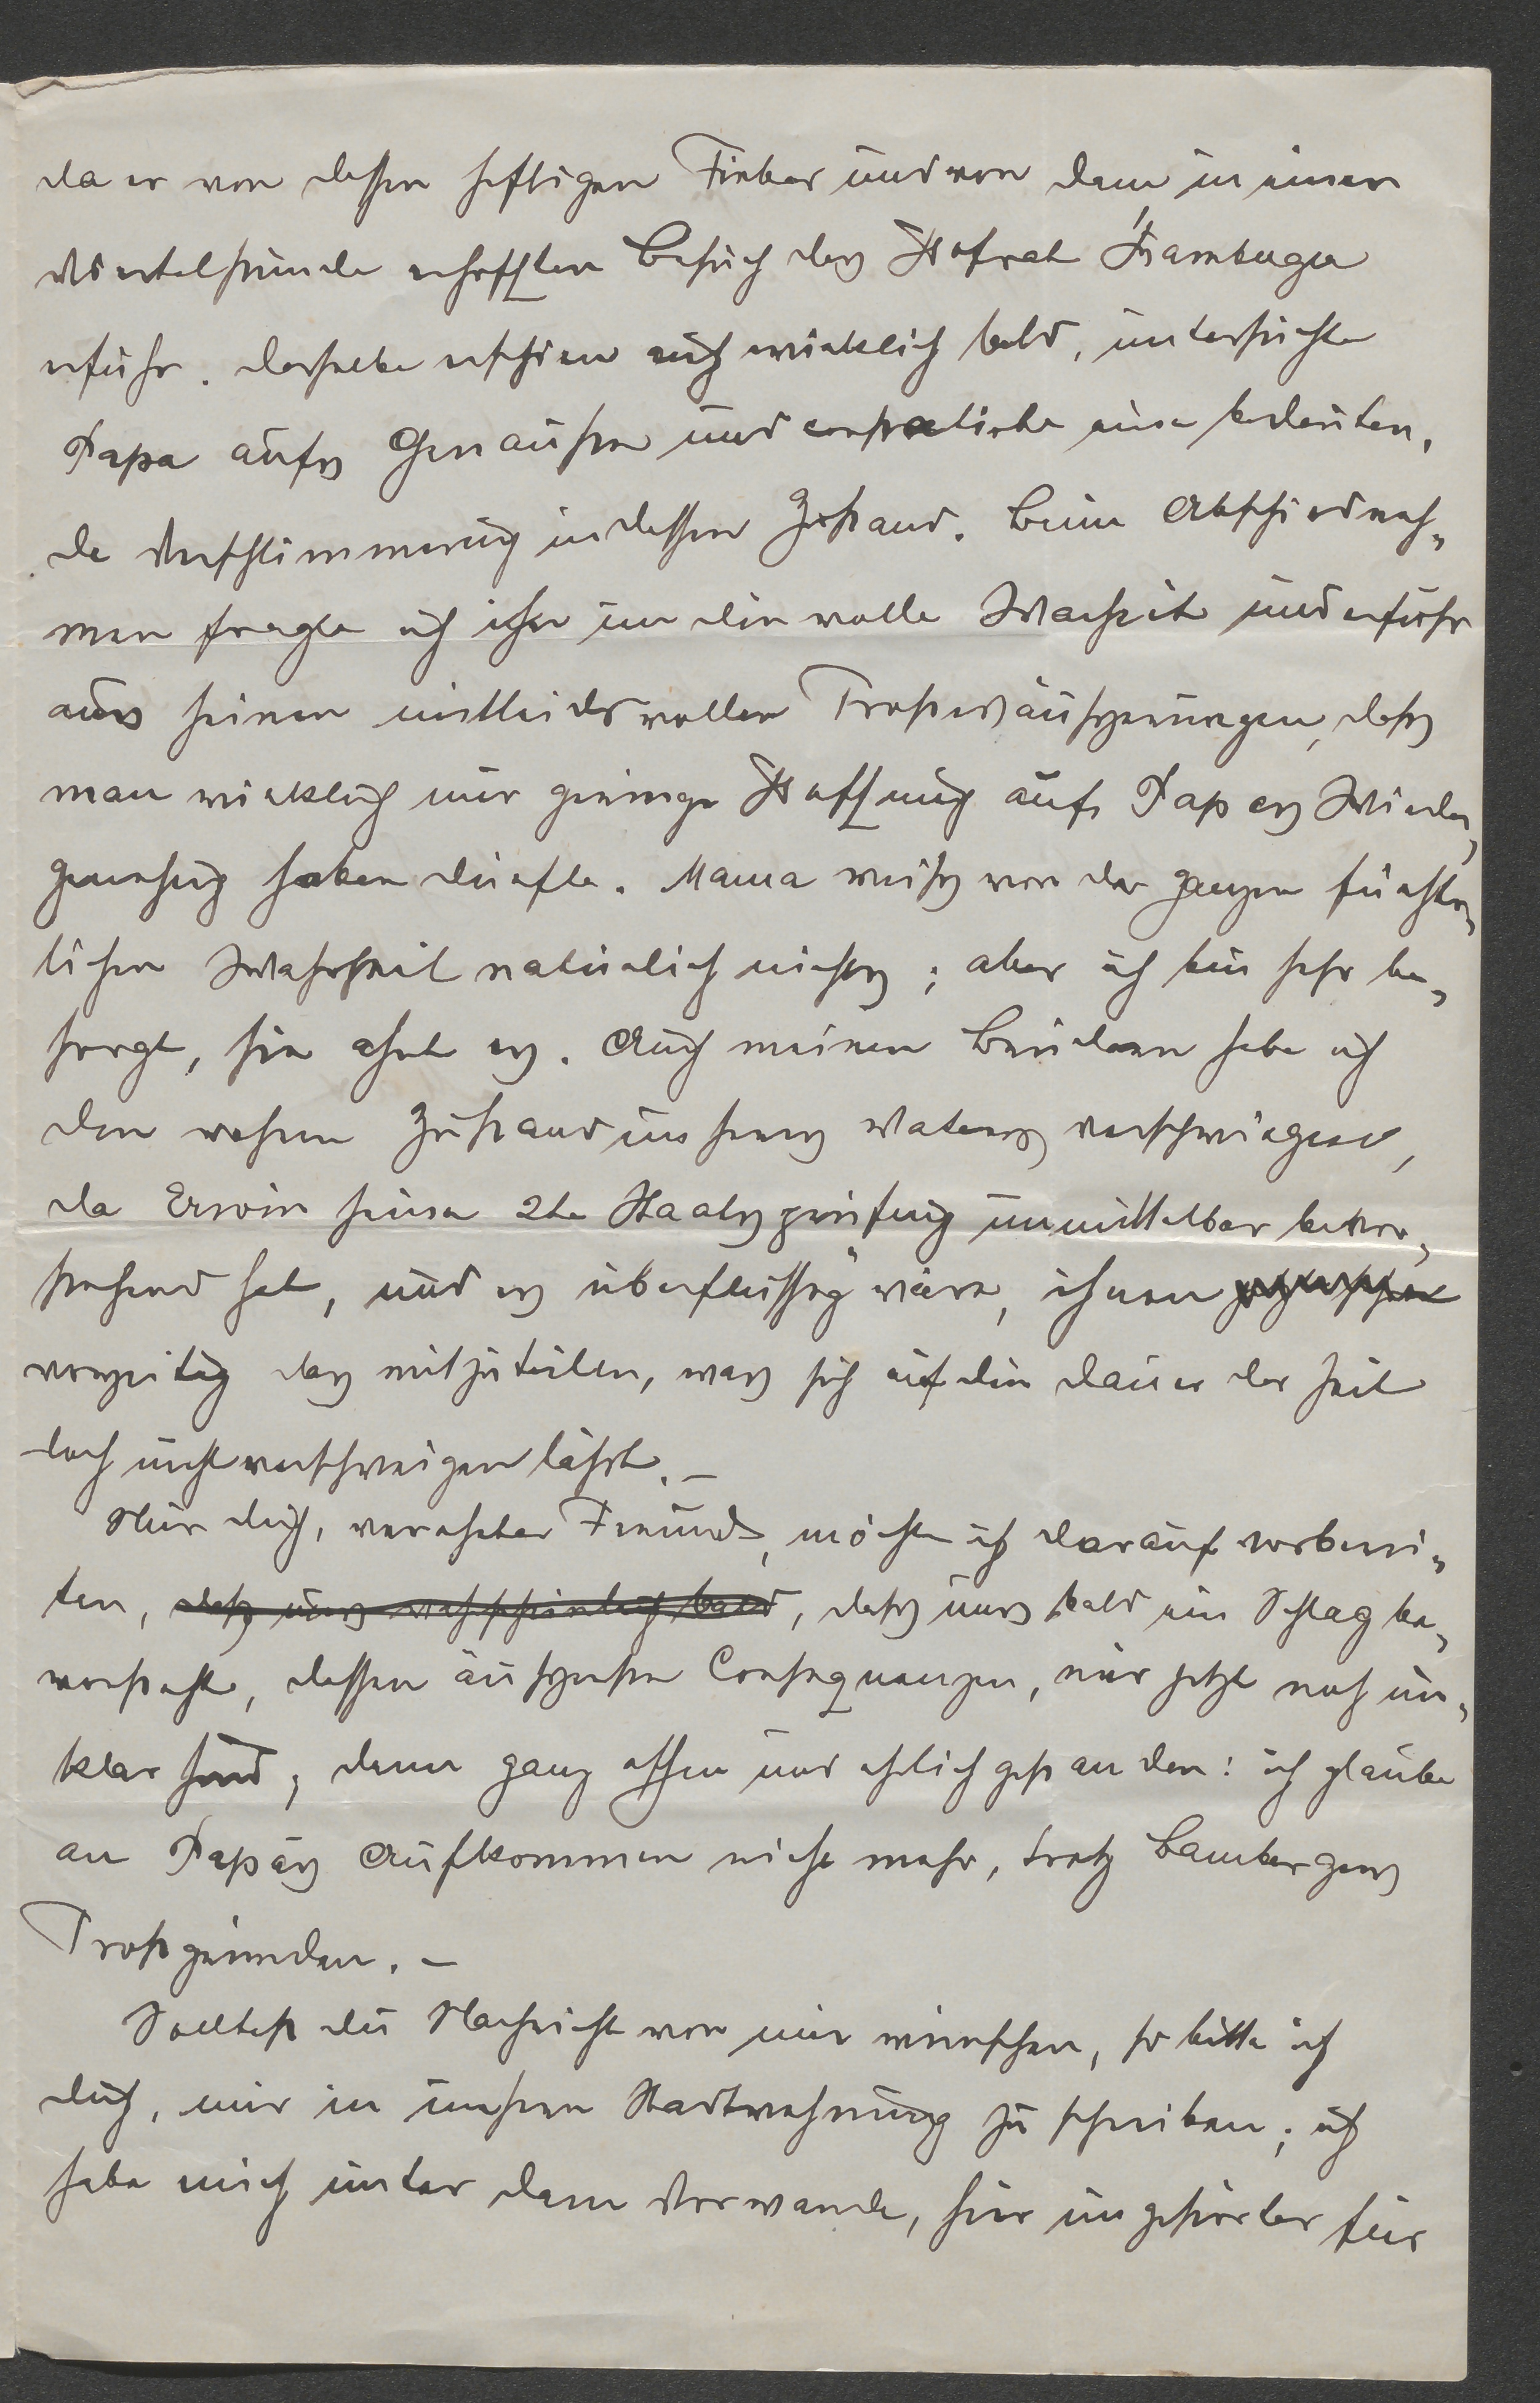 da er von dessen heftigen Fieber und von dem in einer
Viertelstunde erhofften Besuch des Hofrat Bamberger
erfuhr. Derselbe erschien auch wirklich bald, untersuchte
Papa aufs Genauste und constatirte eine bedeuten„
de Verschlimmerung in dessen Zustand. Beim Abschiedneh„
men fragte ich ihn um die volle Warheit und erfuhr
aus seinen mitleidsvollen Trostesäußerungen, daß
man wirklich nur geringe Hoffnung auf Papas Wieder„
genesung haben dürfte. Mama weiß von der ganzen fürchter„
lichen Wahrheit natürlich nichts; aber ich bin sehr be„
sorgt, sie ahnt es. Auch meinen Brüdern habe ich
den wahren Zustand unseres Vaters verschwiegen,
da Erwin seine 2te Staatsprüfung unmittelbar bevor„
stehend hat, und es überflüssig wäre, ihnen
vorzeitig das mitzuteilen, was sich auf die Dauer der Zeit
doch nicht verschweigen läßt. –
Nur dich, verehrter Freund, möchte ich darauf vorberei„
ten, daß uns wahrscheinlich bald, daß uns bald ein Schlag be„
vorsteht, dessen äußerste Consequenzen, mir jetzt noch un„
klar sind; denn ganz offen und ehrlich gestanden: ich glaube
an Papas Aufkommen nicht mehr, trotz Bambergers
Trostgründen. –
Solltest du Nachricht von mir wünschen, so bitte ich
dich, mir in unsere Stadtwohnung zu schreiben; ich
habe mich unter dem Vorwande, hier ungestörter für